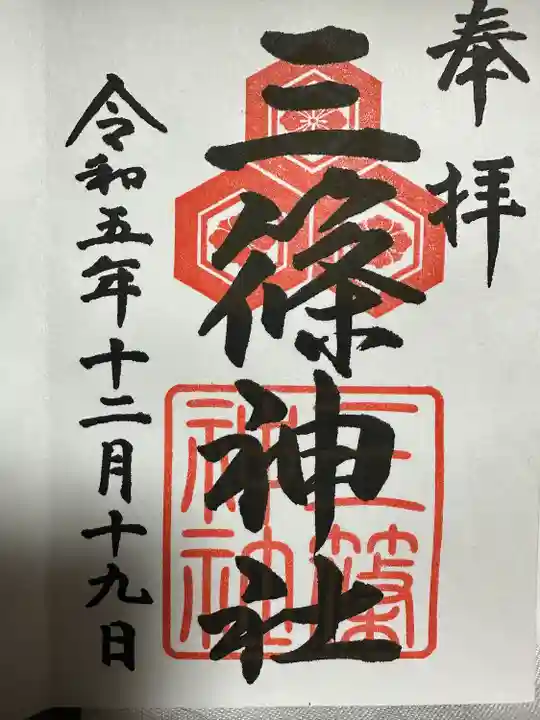 奉拝
三條神社
三條神社
令和五年十二月十九日